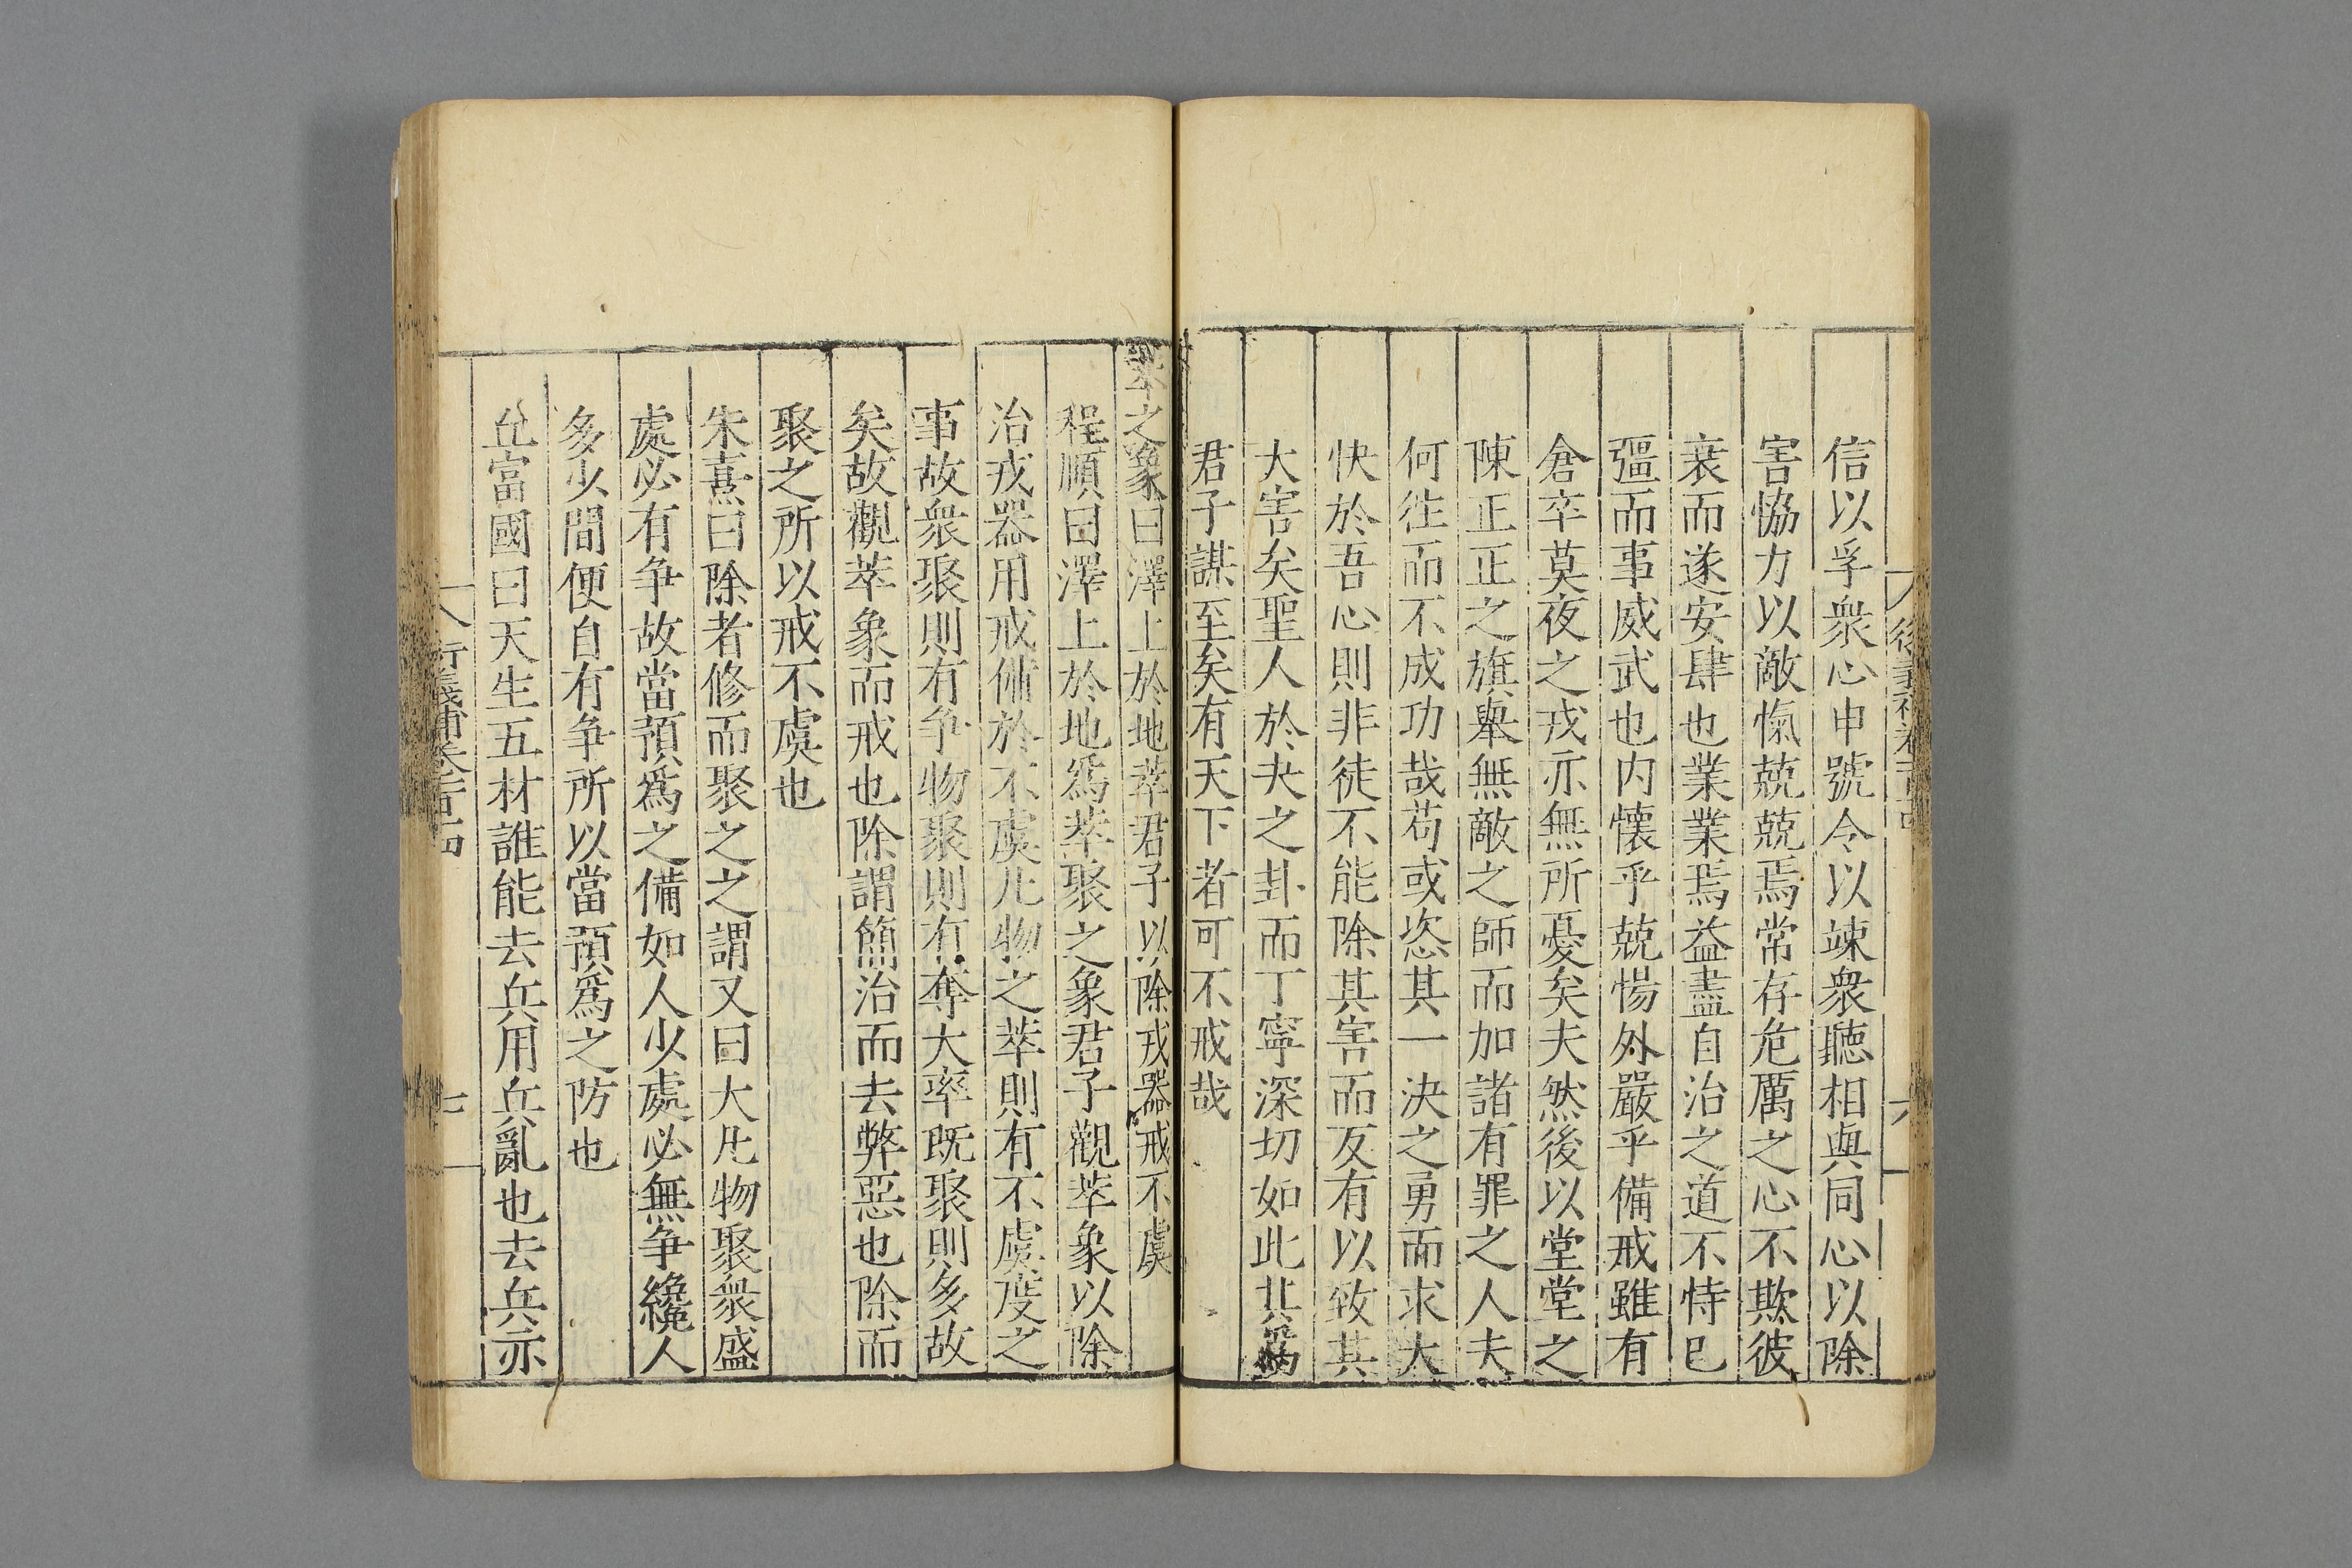 信以孚衆心申號令以竦衆聽相與同心以除
害恊力以敵愾兢兢焉常存危厲之心不欺彼
衰而遂安肆也業業焉益盡自治之道不恃已
彊而事威武也内懷乎兢惕外嚴乎備戒雖有
倉卒莫夜之戎亦無所憂矣夫然後以堂堂之
陳正正之旗舉無敵之師而加諸有罪之人夫
何往而不成功哉苟或恣其一決之勇而求大
快於吾心則非徒不能除其害而反有以致其
大害矣聖人於夬之卦而丁寧深切如此其為
君子謀至矣有天下者可不戒哉
萃之象曰澤上於地萃君子以除戎器戒不虞
程頤曰澤上於地爲萃聚之象君子觀萃象以除
治戎器用戒備於不虞凡物之萃則有不虞度之
事故衆聚則有争物聚則有奪大率既聚則多故
矣故觀萃象而戒也除謂簡治而去弊惡也除而
聚之所以戒不虞也
朱熹曰除者修而聚之之謂又曰大凡物聚衆盛
處必有争故當預爲之備如人少處必無争纔人
多少間便自有争所以當預爲之防也
丘富國曰天生五材誰能去兵用兵亂也去兵亦
七